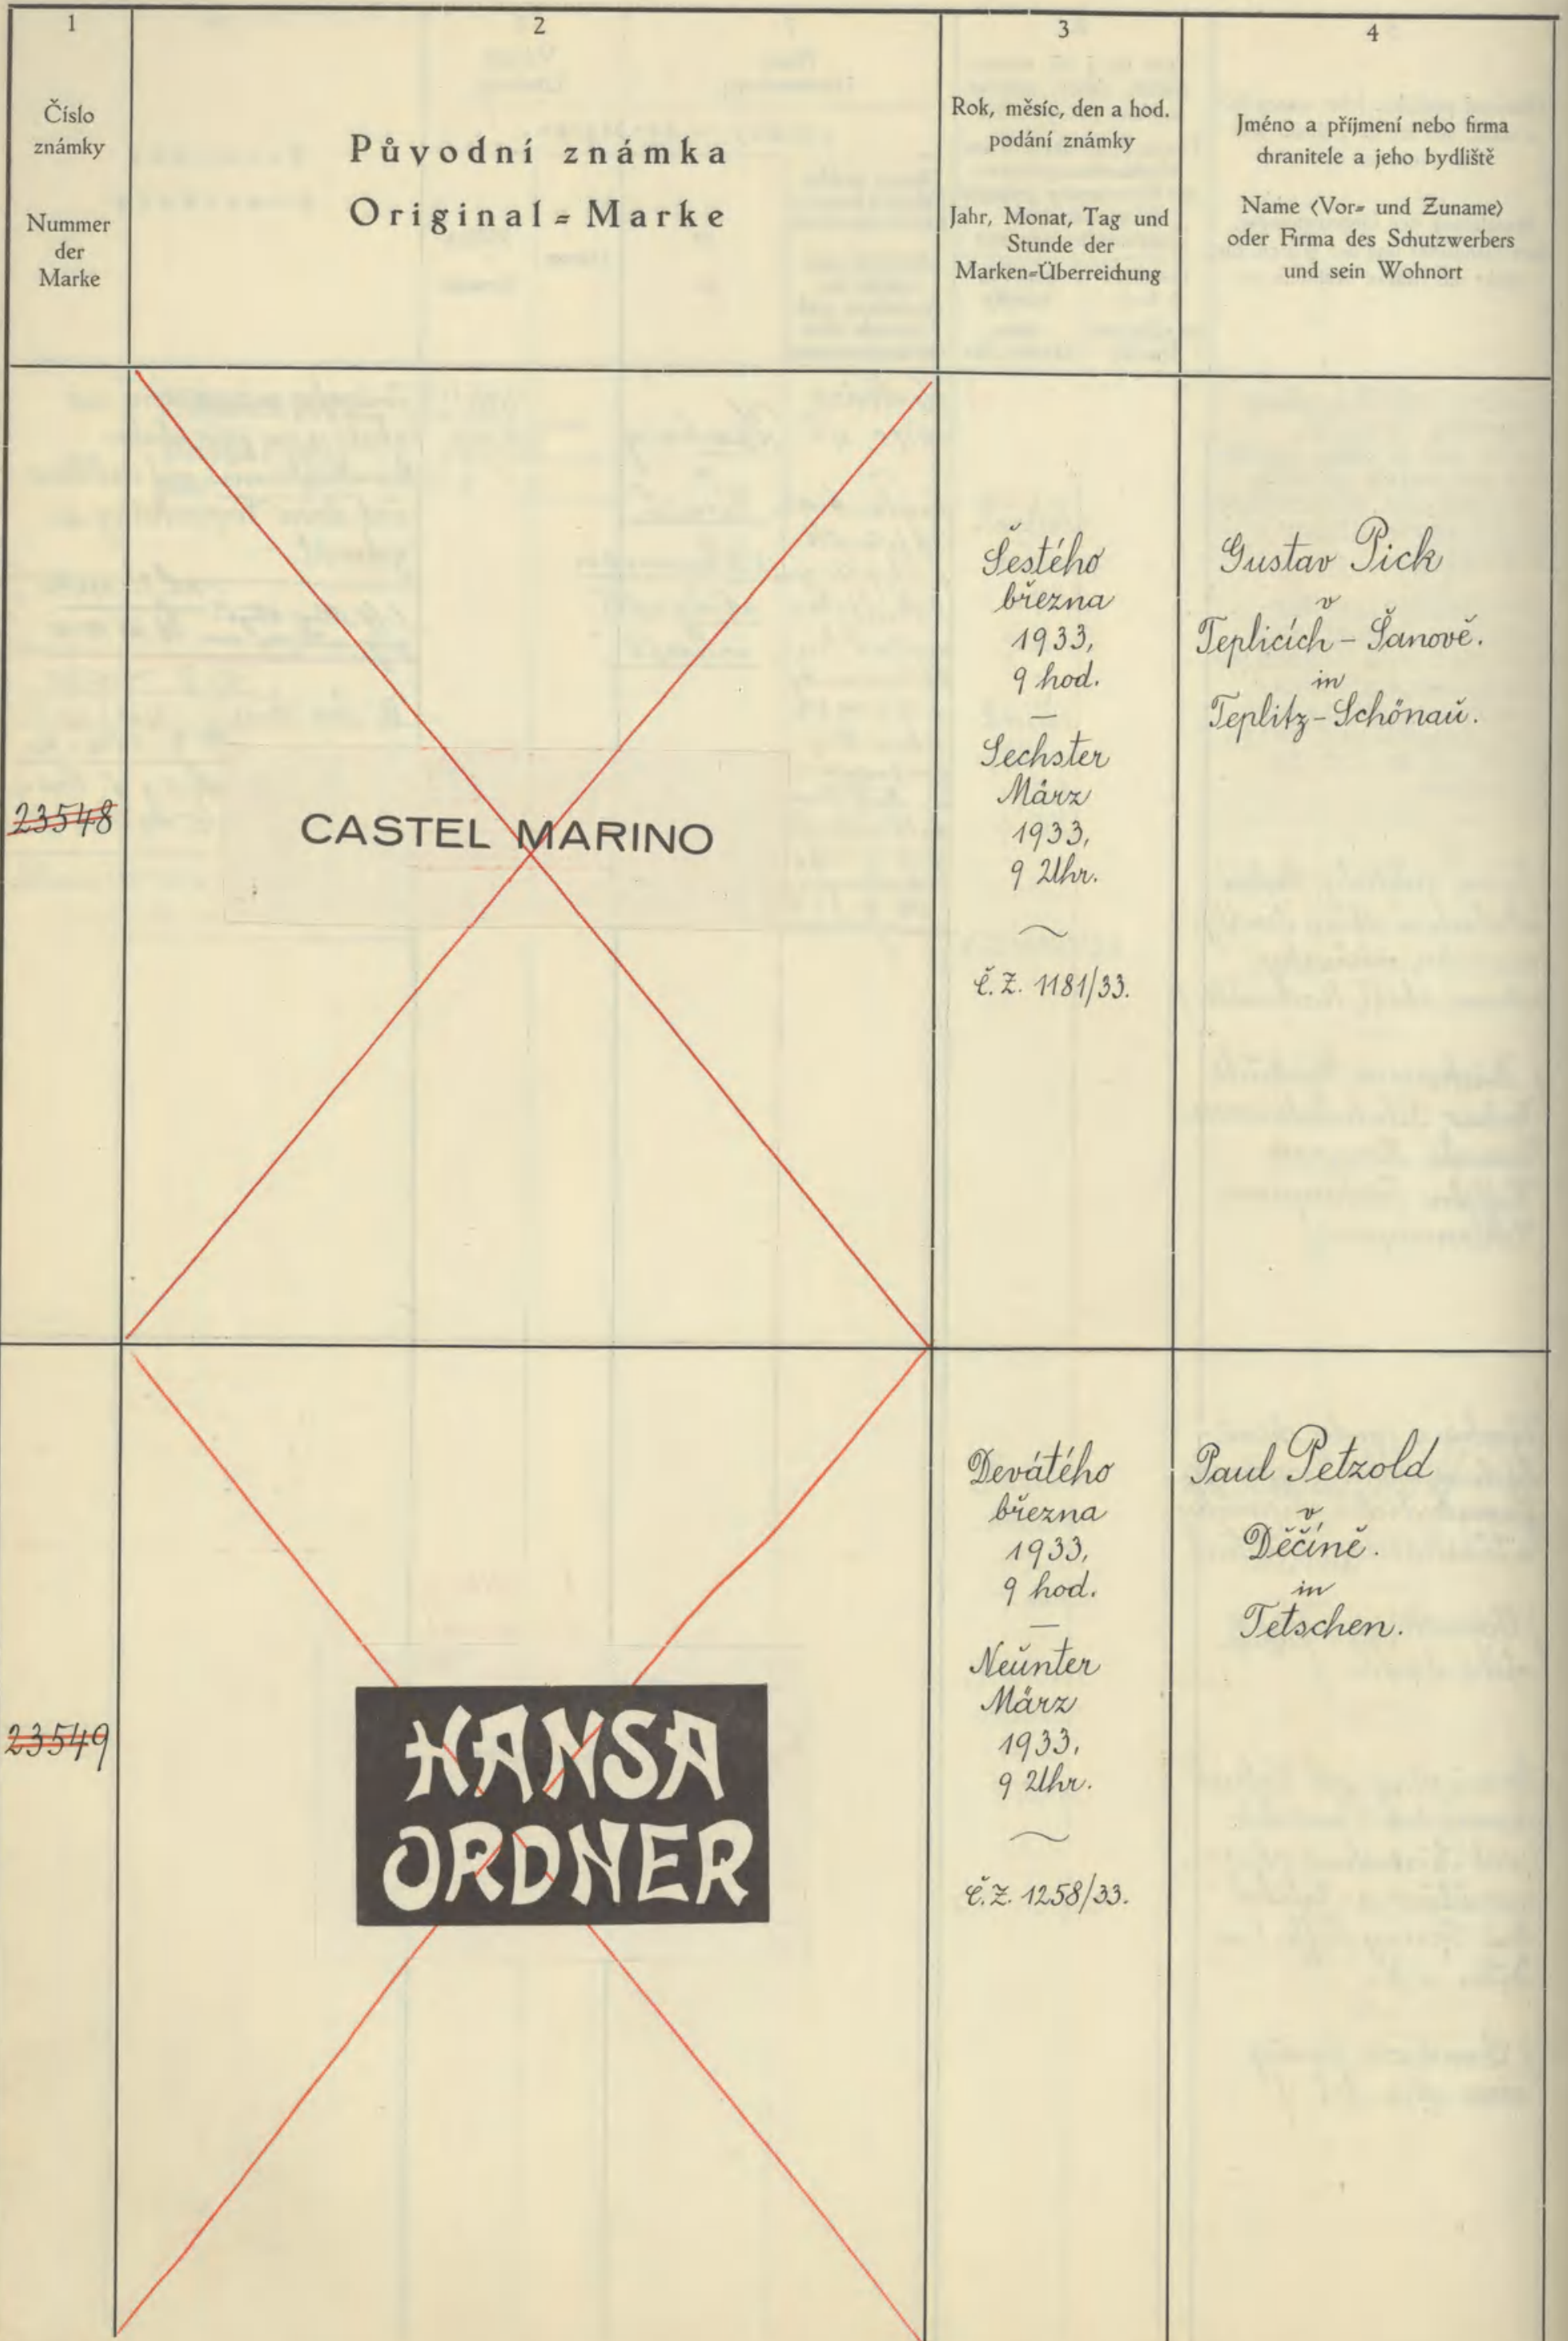 1
Číslo
známky
Nummer
der
Marke
2
Původní známka
Original=Marke
3
Rok, měsíc, den a hod.
podání známky
Jahr, Monat, Tag und
Stunde der
Marken=Überreichung
4
Jméno a příjmení nebo firma
chranitele a jeho bydliště
Name (Vor= und Zuname)
oder Firma des Schutzwerbers
und sein Wohnort
23548
CASTEL MARINO
Šestého
března
1933,
9 hod.
—
Sechster
März
1933,
9 Uhr.
č.ž. 1181/33.
Gustav Pick
v
Teplicích - Šanově.
in
Teplitz - Schönau.
23549
HANSA
ORDNER
Devátého
března
1933,
9 hod.
—
Neunter
März
1933,
9 Uhr.
č.ž. 1258/33.
Paul Petzold
v
Děčíně.
in
Tetschen.